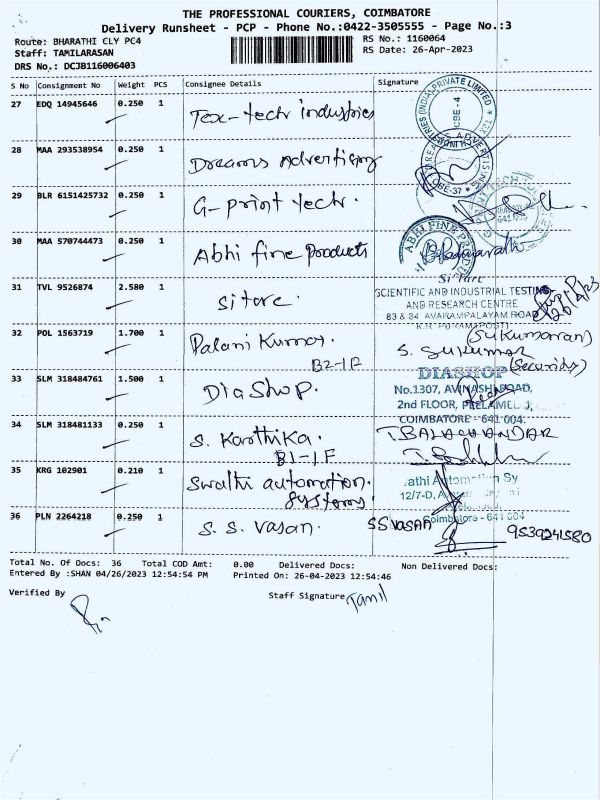 THE PROFESSIONAL COURIERS, COIMBATORE
Delivery Runsheet - PCP - Phone No.:0422-3505555 - Page No.:3
Route: BHARATHI CLY PC4
Staff: TAMILARASAN
DRS No.: DCJB116006403
RS No.: 1160064
RS Date: 26-Apr-2023
S No Consignment No Weight PCS Consignee Details Signature
27 EDQ 14945646 0.250 1 Tex-tech industries
28 MAA 293538954 0.250 1 Dreams Advertising
CBE-37
29 BLR 6151425732 0.250 1 G-print tech.
30 MAA 570744473 0.250 1 Abhi fine products
ABHI FINE
31 TVL 9526874 2.580 1 sitarc.
SCIENTIFIC AND INDUSTRIAL TESTING
AND RESEARCH CENTRE
83 & 84 AVARAMPALAYAM ROAD
32 POL 1563719 1.700 1 Palani Kumar.
B2-1F
(Sukumaran)
S. Sukumar
(Security)
33 SLM 318484761 1.500 1 DiaShop.
DIASHOP
No.1307, AVINASHI ROAD,
2nd FLOOR, PEELAMEDU,
COIMBATORE - 641 004.
34 SLM 318481133 0.250 1 S. Karthika.
B1-1F
T.BALACHANDAR
35 KRG 102901 0.210 1 Swathi automation.
Systems.
athi Automation Sy
12/7-D,
Coimbatore - 641 004
36 PLN 2264218 0.250 1 S. S. Vasan.
SS VASAN
9539241580
Total No. Of Docs: 36 Total COD Amt: 0.00 Delivered Docs: Non Delivered Docs:
Entered By :SHAN 04/26/2023 12:54:54 PM Printed On: 26-04-2023 12:54:46
Verified By
Staff Signature Tamil